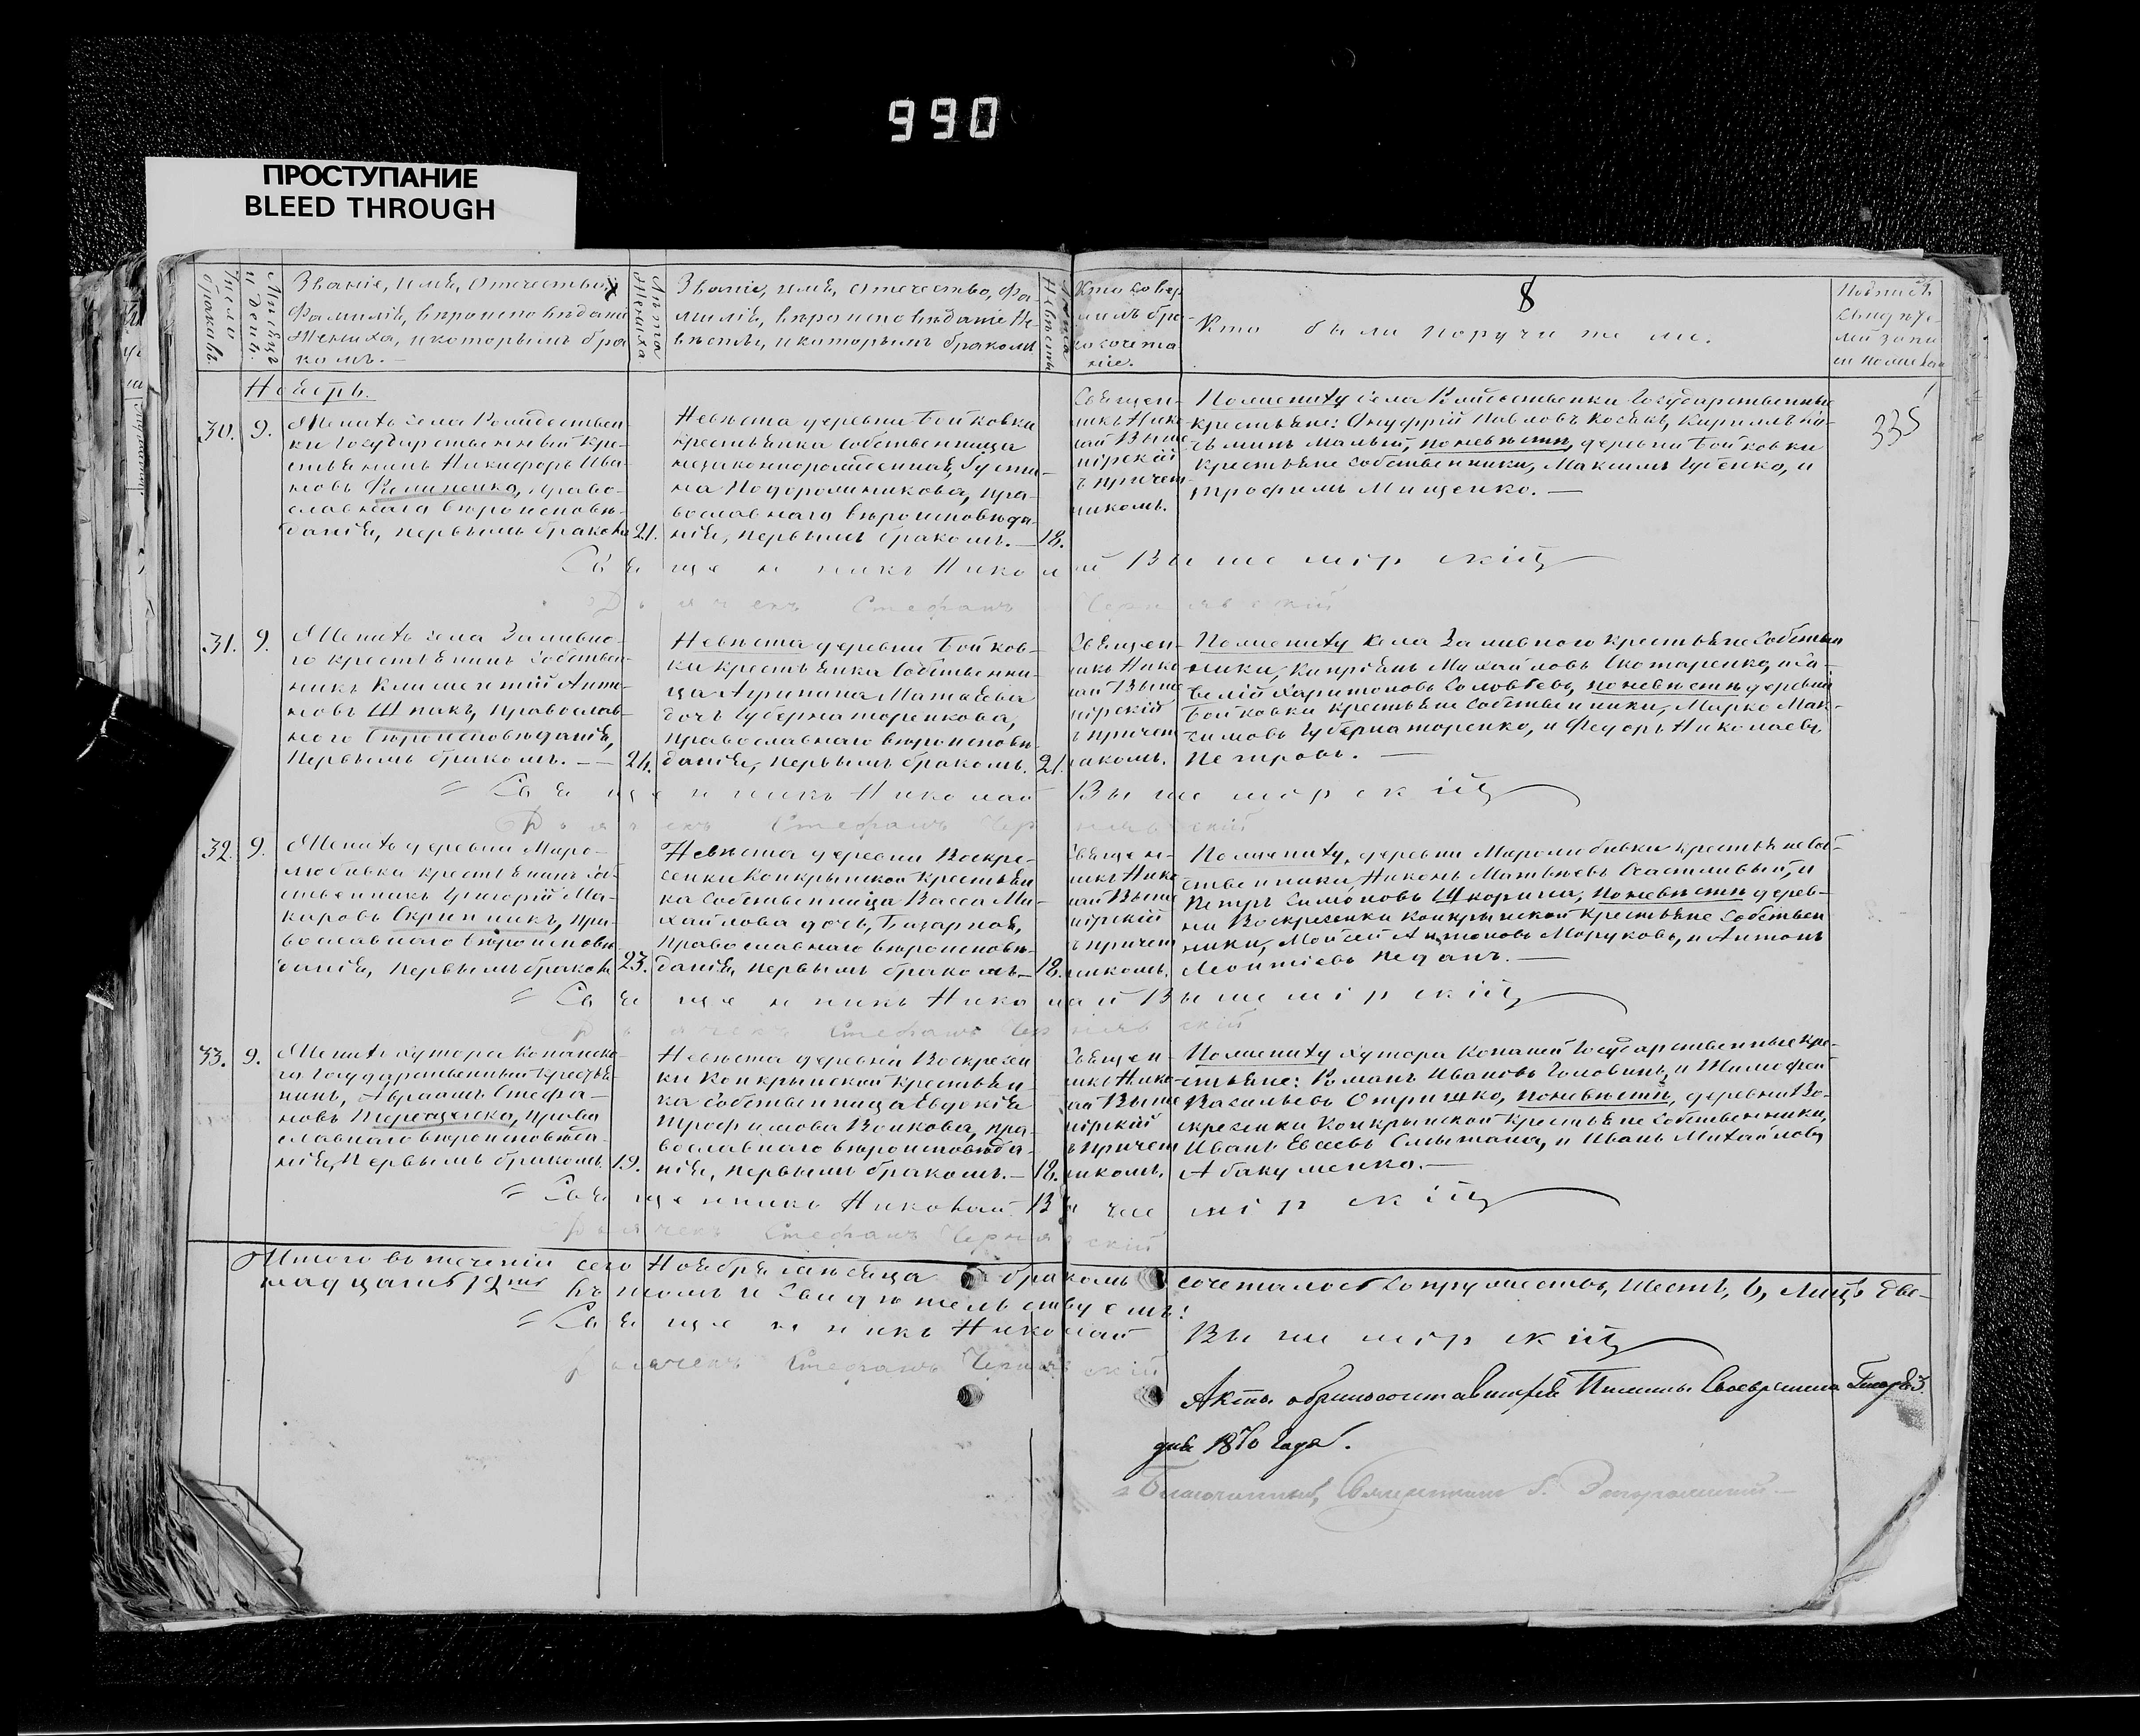 990
ПРОСТУПАНИЕ
BLEED THROUGH
Званіе, имя, отечество,
фамилія, вѣроисповѣданіе
жениха, и которымъ бра
комъ. —
Лѣта Жениха.
Званіе, имя, отечество, фа-
милія, вѣроисповѣданіе Не-
вѣсты, и которымъ бракомъ
Лѣта Невѣсты
Кто совер
шилъ бра-
косочета
ніе.
8
Кто были поручители.
Ноябрь.
30. 9.
Женихъ села Рождествен
ки Государственный кре-
стьянинъ Никифоръ Ива-
новъ Филипенко, право-
славнаго вѣроисповѣ-
данія, первымъ бракомъ 21.
Невѣста деревни Бойковки
крестьянка собственница
православнаго вѣроисповѣда-
нія, первымъ бракомъ. — 18.
Священ-
никъ Нико
лай Выше
мірскій
съ причет
никомъ.
По жениху села Рождественки Государственные
крестьяне: Онуфрій Павловъ Козакъ, Кирилъ
Малый, по невѣсти, деревни Бойковки
крестьяне собственники, Максимъ Губенко, и
Трофимъ Мищенко. —
335
Священникъ Николай Вышемірскій
Дьячекъ Стефанъ Чернявскій
31. 9.
Женихъ села Заливно-
го крестьянинъ собствен-
никъ Климентій Анто-
новъ Шпакъ, православ-
ного вѣроисповѣданія,
первымъ бракомъ. — 24.
Невѣста деревни Бойков-
ки крестьянка собственни-
ца Агрипина Матвѣева
дочь Губернаторенкова,
православнаго вѣроисповѣ-
данія, первымъ бракомъ. 21.
Священ-
никъ Нико
лай Выше
мірскій
съ причет
никомъ.
По жениху села Заливного крестьяне собствен
ники, Кипріянъ Михайловъ Скотаренко, и Са-
велій Харитоновъ Соловьевъ, по невѣсти деревни
Бойковки крестьяне собственники, Марко Мак-
симовъ Губернаторенко, и Федоръ Николаевъ
Петровъ. —
Священникъ Николай Вышемірскій
Дьячекъ Стефанъ Чернявскій
32. 9.
Женихъ деревни Миро-
любивки крестьянинъ соб-
ственникъ Григорій Ма-
каровъ Скрипникъ, пра-
вославнаго вѣроисповѣ
данія, первымъ бракомъ 23.
Невѣста деревни Воскре-
сенки Конкрынской крестьян
ка собственница Васса Ми-
хайлова дочь,
православнаго вѣроисповѣ-
данія, первымъ бракомъ — 18.
Священ-
никъ Нико
лай Выше
мірскій
съ причет
никомъ.
По жениху, деревни Миролюбивки крестьяне соб-
ственники, Никонъ Матвѣевъ Счастливый, и
Петръ Симоновъ Шкорина, по невѣсти дерев-
ни Воскресенки Конкрынской крестьяне собствен
ники, Мойсей Антоновъ Моруковъ, и Антонъ
Леонтіевъ Неданъ. —
Священникъ Николай Вышемірскій
Дьячекъ Стефанъ Чернявскій
33. 9.
Женихъ хутора Копанско-
го Государственный крестья-
нинъ, Авраамъ Стефа-
новъ Терещенко, право
славнаго вѣроисповѣда-
нія, первымъ бракомъ. 19.
Невѣста деревни Воскресен
ки Конкрынской крестьян-
ка собственница Евдокія
Трофимова Волкова, пра-
вославнаго вѣроисповѣда-
нія, первымъ бракомъ. — 18.
Священ-
никъ Нико-
лай Выше
мірскій
съ причет
никомъ.
По жениху хутора Копаней Государственные кре-
стьяне: Романъ Ивановъ Головинъ, и Тимофей
Васильевъ Отришко, по невѣсти, деревни Во-
скресенки Конкрынской крестьяне собственники,
Иванъ Евсеевъ Сметана, и Иванъ Михайловъ
Абакуменко. —
Священникъ Николай Вышемірскій
Дьячекъ Стефанъ Чернявскій
Итого въ теченіи сего Ноября мѣсяца бракомъ сочеталось супружествъ, шесть, 6, лицъ две-
надцать 12ть въ томъ и свидѣтельствуемъ:
Священникъ Николай Вышемірскій
Дьячекъ Стефанъ Чернявскій
дня 1870 года.